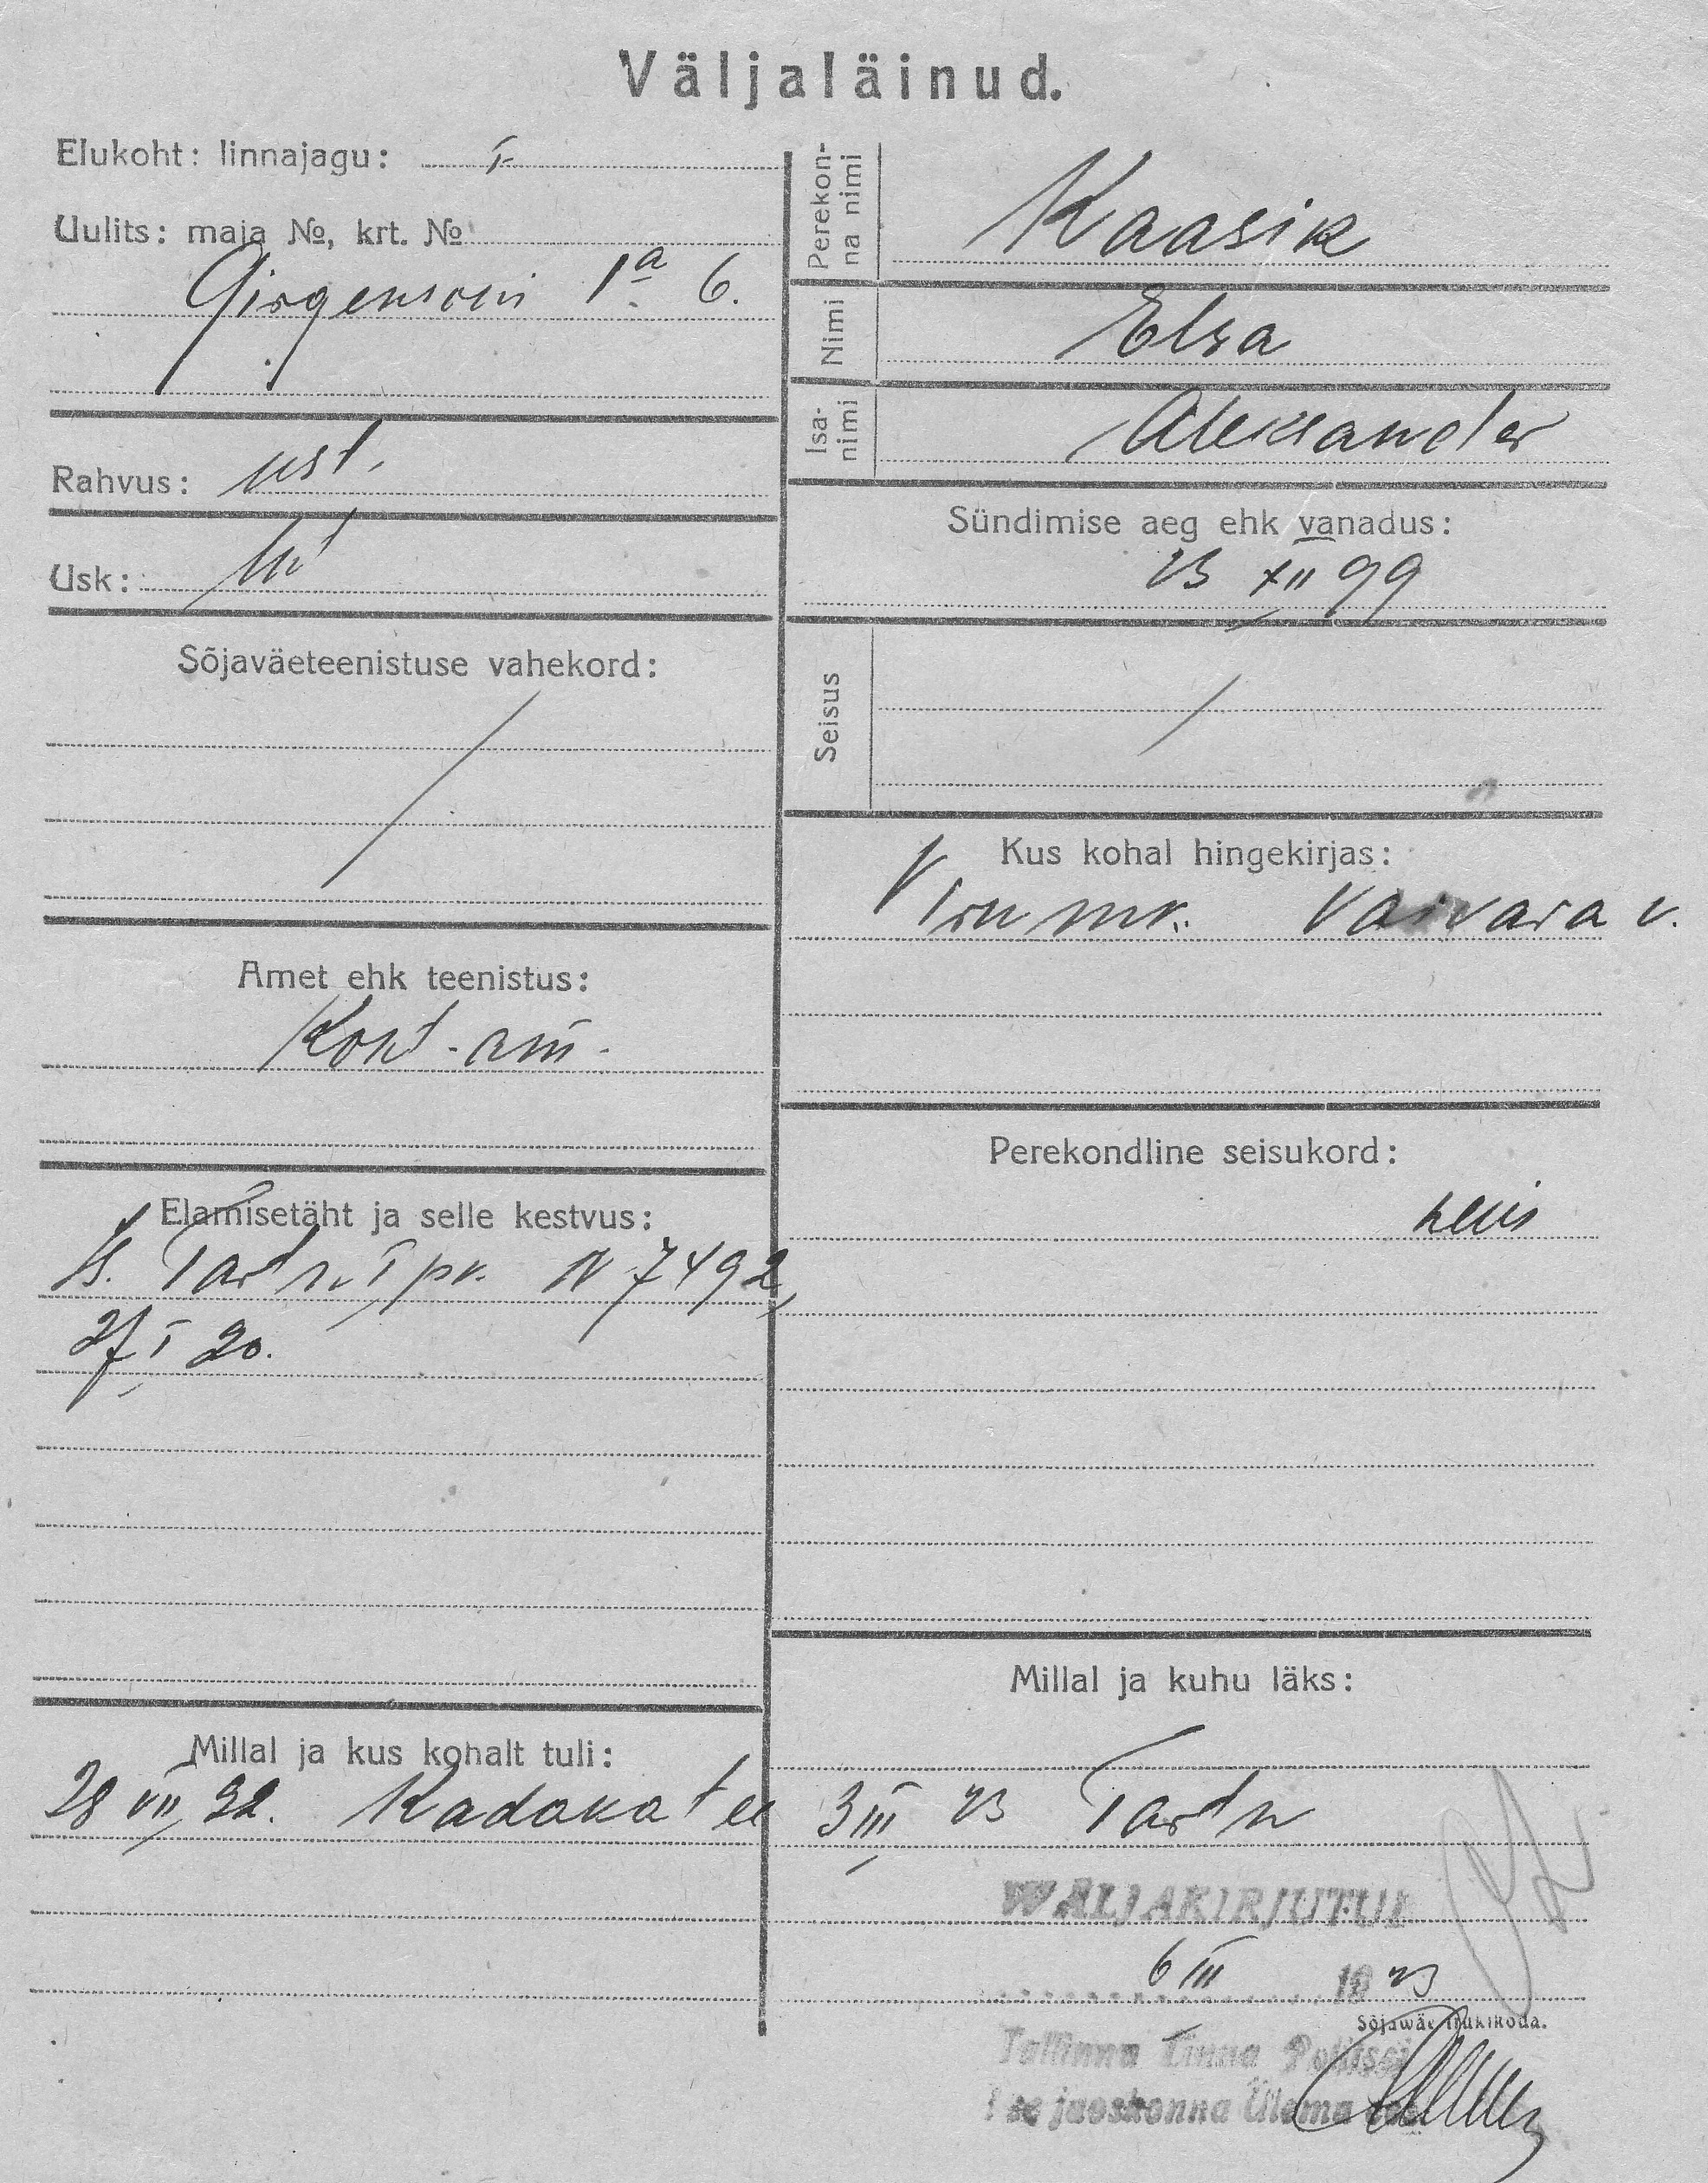 Väljaläinud.
Elukoht: linnajagu: I
Uulits: maja №, krt. №
Girgensoni 1a 6.
Rahvus: est.
Usk: lut
Sõjaväeteenistuse vahekord:
Amet ehk teenistus:
Kont. am.
Elamisetäht ja selle kestvus:
Is. Tartu I pv. N 7492,
27 I 20.
Millal ja kus kohalt tuli:
28 VII 22. Kadaka tee
Perekonna nimi
Kaasik
Nimi
Elsa
Isanimi
Aleksander
Sündimise aeg ehk vanadus:
23 XII 99
Seisus
Kus kohal hingekirjas:
Viru mk. Vaivara v.
Perekondline seisukord:
Millal ja kuhu läks:
3 III 23 Tartu
WÄLJAKIRJUTUD
6 III 1923
Sõjawäe trükikoda.
Tallinna Linna Politsei
I se jaoskonna Ülema